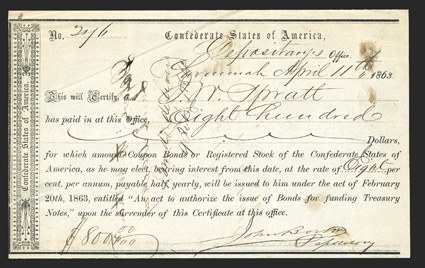 No. 296 Confederate States of America,
Depositary's Office,
Savannah April 11th 1863
This will Certify, that J. W. Spratt
has paid in at this Office, Eight Hundred
Dollars,
for which amount Coupon Bonds or Registered Stock of the Confederate States of
America, as he may elect, bearing interest from this date, at the rate of Eight per
cent. per annum, payable half yearly, will be issued to him under the act of February
20th, 1863, entitled "An act to authorize the issue of Bonds for funding Treasury
Notes," upon the surrender of this Certificate at this office.
$800 00/100
Depositary
Confederate States of America.